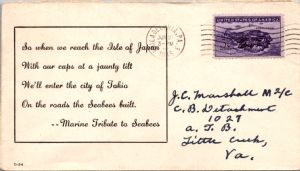 So when we reach the Isle of Japan
With our caps at a jaunty tilt
We'll enter the city of Tokio
On the roads the Seabees built.
--Marine Tribute to Seabees
UNITED STATES OF AMERICA
J.C. Marshall M2/C
C.B. Detachment
1027
A.T.B.
Little Creek,
Va.